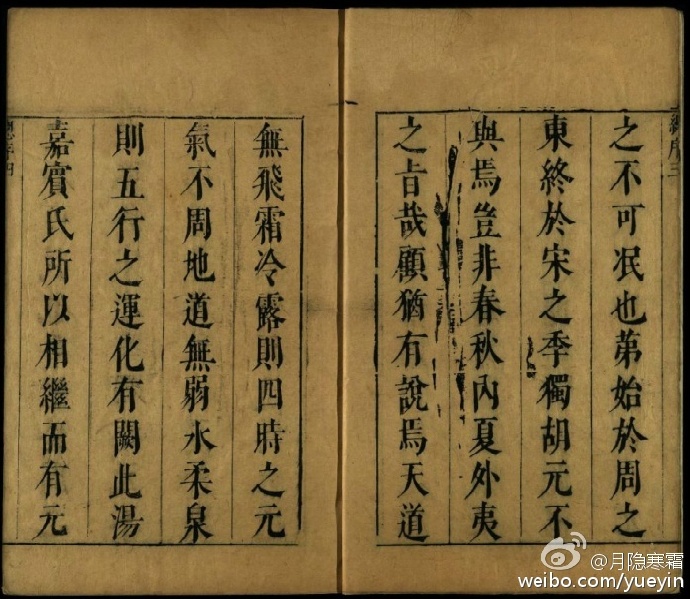 總序三
之不可泯也弟始於周之
東終於宋之季獨胡元不
與焉豈非春秋內夏外夷
之旨哉顧猶有說焉天道
無飛霜冷露則四時之元
氣不周地道無弱水柔泉
則五行之運化有闕此湯
嘉賓氏所以相繼而有元
總序四
@月隐寒霜
weibo.com/yueyin